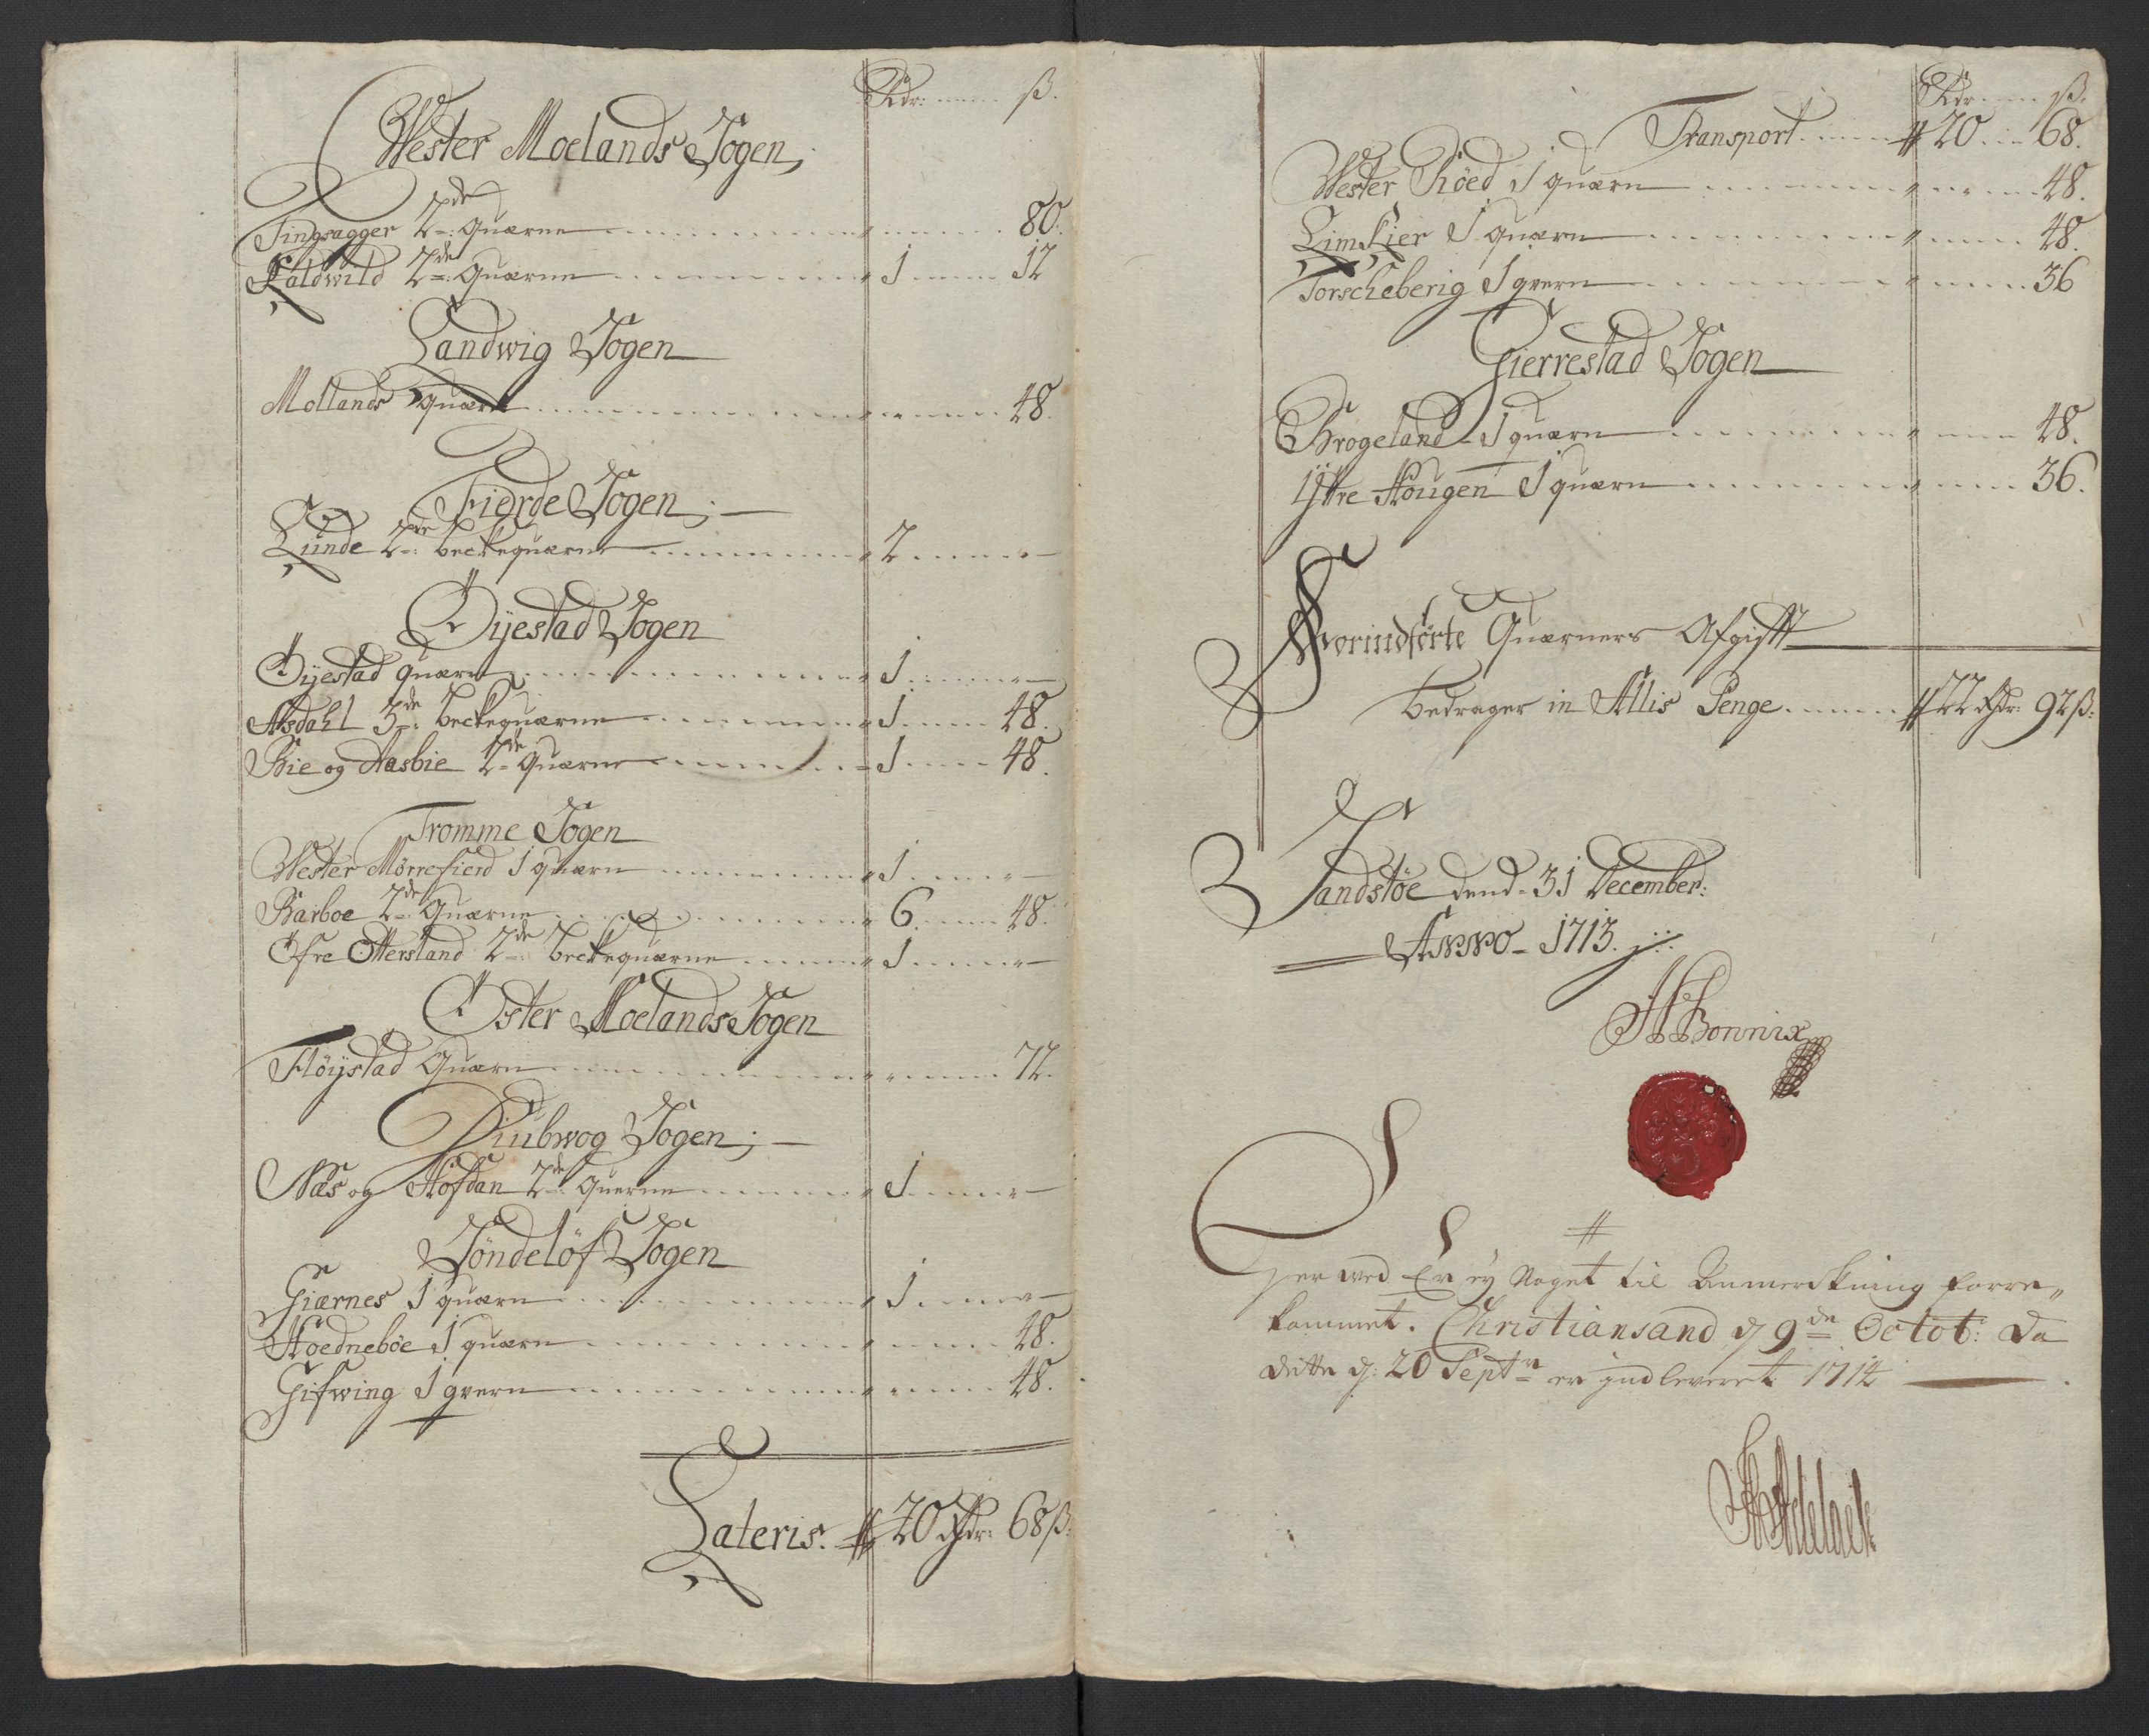 Rdr: ß.
Wester Moelands Sogen,
Tingsagger 2de: Quærne 80.
Kaldwild 2de: Quærne 1 12
Landwig Sogen
Mollands Quærn 48.
Fierde Sogen;
Lunde 2de: beckequærne 2
Öÿestad Sogen
Öÿestad quærn 1
Asdahl 3de: beckequærne 1 48.
Bie og Aasbie 2de Quærne 1 48.
Tromme Sogen
Wester Mørrefierd 1 quærn 1
Barboe 2de Quærne 6 48.
Öfre Otterstand 2de: beckequærne 1
Öster Moelands Sogen
Flöÿstad Quærn 72.
Diubwog Sogen;
Næs og Hofdan 2de Querne 1
Söndelöf Sogen
Giærnes 1 quærn 1
Hoednebøe 1 quærn 48.
Gifwing 1 qvern 48.
Lateris. 20 Rdr: 68 ß.
Rdr ß.
Transport 20 68.
Wester Röed 1 quærn 48.
Limkier 1 quærn 48.
Torscheberig 1 qvern 36
Gierrestad Sogen
Brogeland 1 quærn 48.
Ÿttre Hougen 1 quærn 36.
Forindførte Quærners Afgifft
bedrager in Allis Penge 22 Rdr: 92 ß:
Sandstøe dend 31 December:
Anno 1713.
Her wed Er eÿ Noget til Anmerckning forre„
kommet. Christiansand d 9de Octob: da
dette d: 20 Septr er indleveret 1714